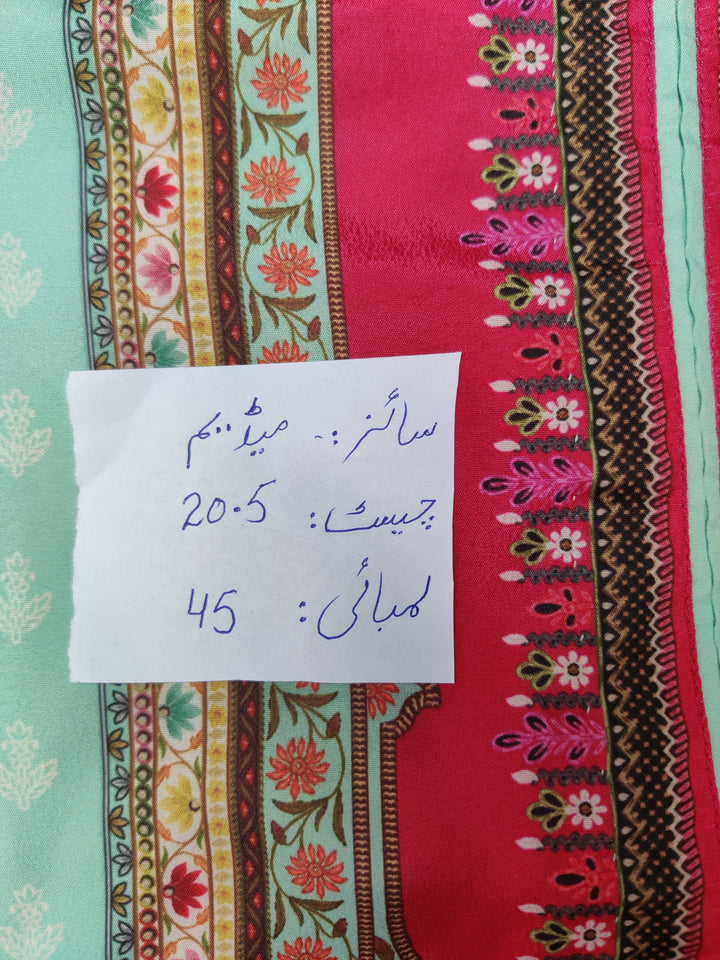 سائز :- میڈیم
چیسٹ : 20.5
لمبائی : 45